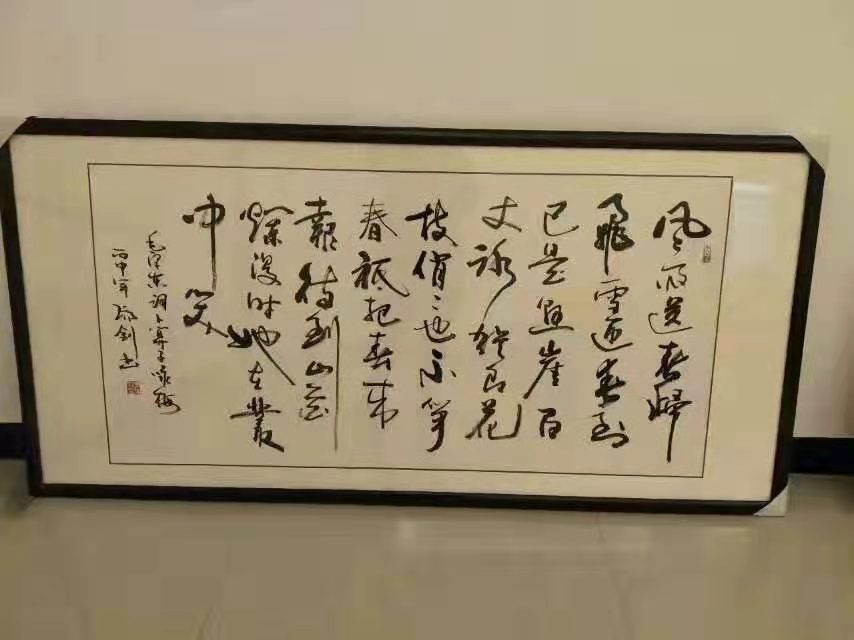 风雨送春歸
飛雪迎春到
已是悬崖百
丈冰猶有花
枝俏〻也不争
春祇把春来
報待到山花
爛漫时她在叢
中笑
毛泽东词卜算子咏梅
丙申年 剑书